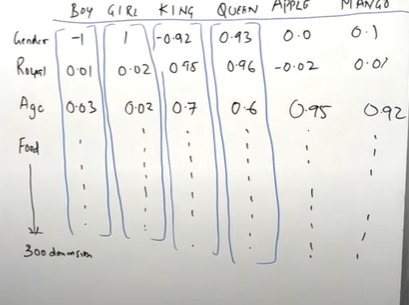 BOY GIRL KING QUEEN APPLE MANGO
Gender -1 1 -0.92 0.93 0.0 0.1
Royal 0.01 0.02 0.95 0.96 -0.02 0.01
Age 0.03 0.02 0.7 0.6 0.95 0.92
Food
300 dimension